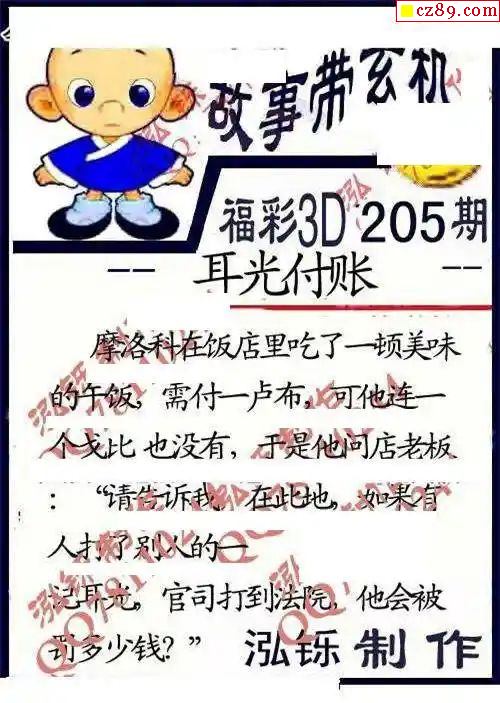 cz89.com
故事带玄机
福彩3D 205期
-- 耳光付账 --
摩洛科在饭店里吃了一顿美味
的午饭，需付一卢布，可他连一
个戈比 也没有，于是他问店老板
：“请告诉我，在此地，如果有
人打了别人的一
记耳光，官司打到法院，他会被
罚多少钱？” 泓铄制作